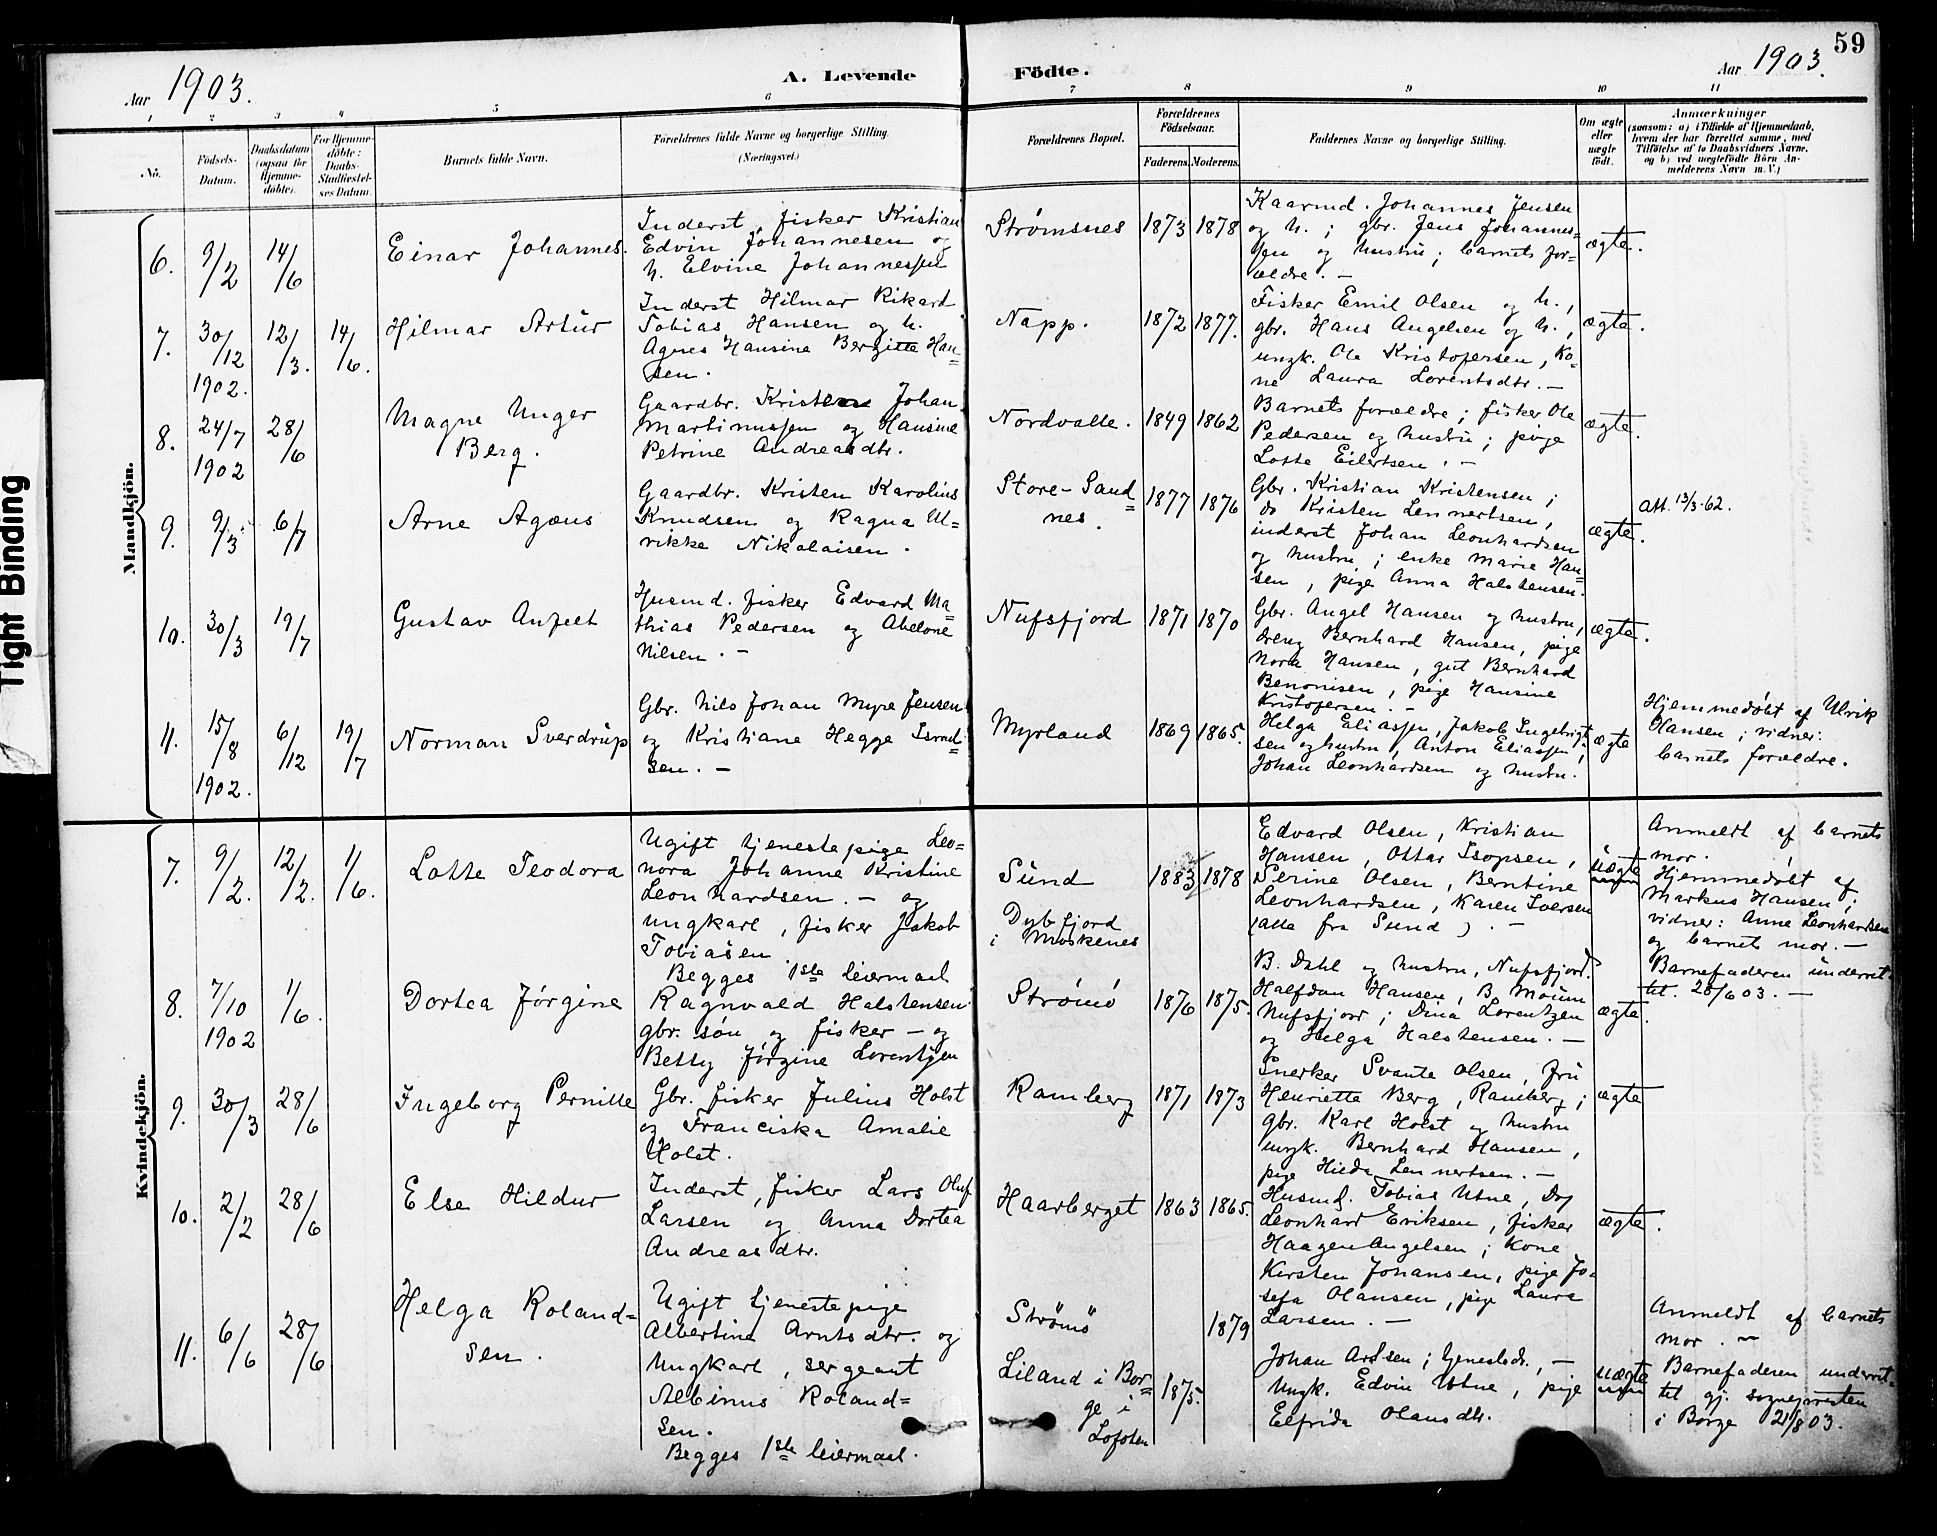 59
Aar 1903.
A. Levende
Födte.
Aar 1903.
1 2 3 4 5 6 7 8 9 10 11
No.
Födsels-
Datum.
Daabsdatum
(ogsaa for
Hjemme-
döbte).
For Hjemme-
döbte:
Daabs-
Stadfæstel-
ses Datum.
Barnets fulde Navn.
Forældrenes fulde Navne og borgerlige Stilling.
(Næringsvei.)
Forældrenes Bopæl.
Forældrenes
Födselsaar.
Faderens.
Moderens.
Faddernes Navne og borgerlige Stilling.
Om ægte
eller
uægte
födt.
Anmærkninger
(saasom: a) i Tilfælde af Hjemmedaab,
hvem der har forrettet samme, med
Tilföielse af to Daabsvidners Navne,
og b) ved uægtefödte Börn An-
melderens Navn m. V.)
Mandkjön.
6.
9/2
14/6
Einar Johannes.
Inderst, fisker Kristian
Edvin Johannesen og
h. Elvine Johannessen
Strømsnes
1873
1878
Kaarmd. Johannes Jensen
og h.; gbr. Jens Johannes-
sen og hustru; barnets for-
ældre. -
ægte.
7.
30/12
1902.
12/3.
14/6.
Hilmar Artur
Inderst Hilmar Rikard
Tobias Hansen og h.
Agnes Hansine Bergitte Han-
sen.
Napp.
1872
1877.
Fisker Emil Olsen og h.,
gbr. Hans Angelsen og h.,
ungk. Ole Kristofersen, Ko-
ne Laura Lorentsdtr. -
ægte.
8.
24/7
1902
28/6
Magne Unger
Berg.
Gaardbr. Kristen Johan
Martinussen og Hansine
Petrine Andreasdtr.
Nordvalle.
1849
1862
Barnets forældre; fisker Ole
Pedersen og hustru; pige
Lotte Eilertsen. -
ægte.
9.
9/3
6/7
Arne Agæus
Gaardbr. Kristen Karolius
Knudsen og Ragna Ul-
rikke Nikolaisen.
Store-Sand-
nes.
1877
1876
Gbr. Kristian Kristensen;
do Kristen Lennertsen,
inderst Johan Leonhardsen
og hustru; enke Marie Han-
sen, pige Anna Halstensen.
ægte.
Att. 13/3-62.
10.
30/3
19/7
Gustav Anfelt
Husmd. fisker Edvard Ma-
thias Pedersen og Abelone
Nilsen. -
Nufsfjord
1871
1870
Gbr. Angel Hansen og hustru,
dreng Bernhard Hansen, pige
Nora Hansen, gut Bernhard
Benonisen, pige Hansine
Kristofersen. -
ægte.
11.
15/8
1902.
6/12
19/7
Norman Sverdrup
Gbr. Nils Johan Myre Jensen
og Kristiane Hegge Israel-
sen. -
Myrland
1869
1865.
Helga Eliassen, Jakob Ingebrigt-
sen og hustru, Anton Eliassen;
Johan Leonhardsen og hustru.
ægte
Hjemmedøbt af Ulrik
Hansen; vidner:
barnets forældre.
Kvindekjön.
7.
9/2.
12/2.
1/6.
Lotte Teodora
Ugift tjenestepige Leo-
nora Johanne Kristine
Leonhardsen. - og
ungkarl, fisker Jakob
Tobiasen.
Begges 1ste leiermaal
Sund
Dybfjord
i Moskenes
1883
1878
Edvard Olsen, Kristian
Hansen, Ottar Isopsen,
Serine Olsen, Berntine
Leonhardsen, Karen Iversen
(alle fra Sund). -
uægte
Anmeldt af barnets
mor.
Hjemmedøbt af
Markus Hansen;
vidner: Anne Leonhardsen
og barnets mor. -
Barnefaderen underret-
tet. 28/6 03. -
8.
7/10
1902
1/6.
Dortea Jørgine
Ragnvald Halstensen
gbr. søn og fisker - og
Betty Jørgine Lorentzen
Strömö
1876
1875.
B. Dahl og hustru, Nufsfjord.
Halfdan Hansen, B. Moum
Nufsfjord; Dina Lorentzen
og Helga Halstensen. -
ægte.
9.
30/3
28/6
Ingeborg Pernille
Gbr. fisker Julius Holst
og Franciska Amalie
Holst.
Ramberg
1871
1873
Snerker Svante Olsen, fru
Henriette Berg, Ramberg;
gbr. Karl Holst og hustru
ungk. Bernhard Hansen,
pige Hilda Lennertsen. -
ægte
10.
2/2
28/6
Else Hildur
Inderst, fisker Lars Oluf
Larsen og Anna Dortea
Andreasdtr.
Haarberget
1863
1865.
Husmd. Tobias Utne, Do
Leonhard Eriksen, fisker
Haagen Angelsen; Kone
Kirsten Johansen, pige Jo-
sefa Olausen, pige Laura
Larsen. -
ægte.
11.
6/6
28/6
Helga Roland-
sen.
Ugift tjenestepige
Albertine Arntsdtr. og
Ungkarl, sergeant
Albinus Roland-
sen.
Begges 1ste leiermaal.
Strömö
Liland i Bor-
ge i
Lofoten
1875.
1879
Johan Arntsen; tjenestedr., -
Ungk. Edvin Utne, pige
Elfrida Olausdtr.
uægte
Anmeldt af barnets
mor. -
Barnefaderen underret-
tet gj. sognepresten
i Borge 21/8 03.
Tight Binding